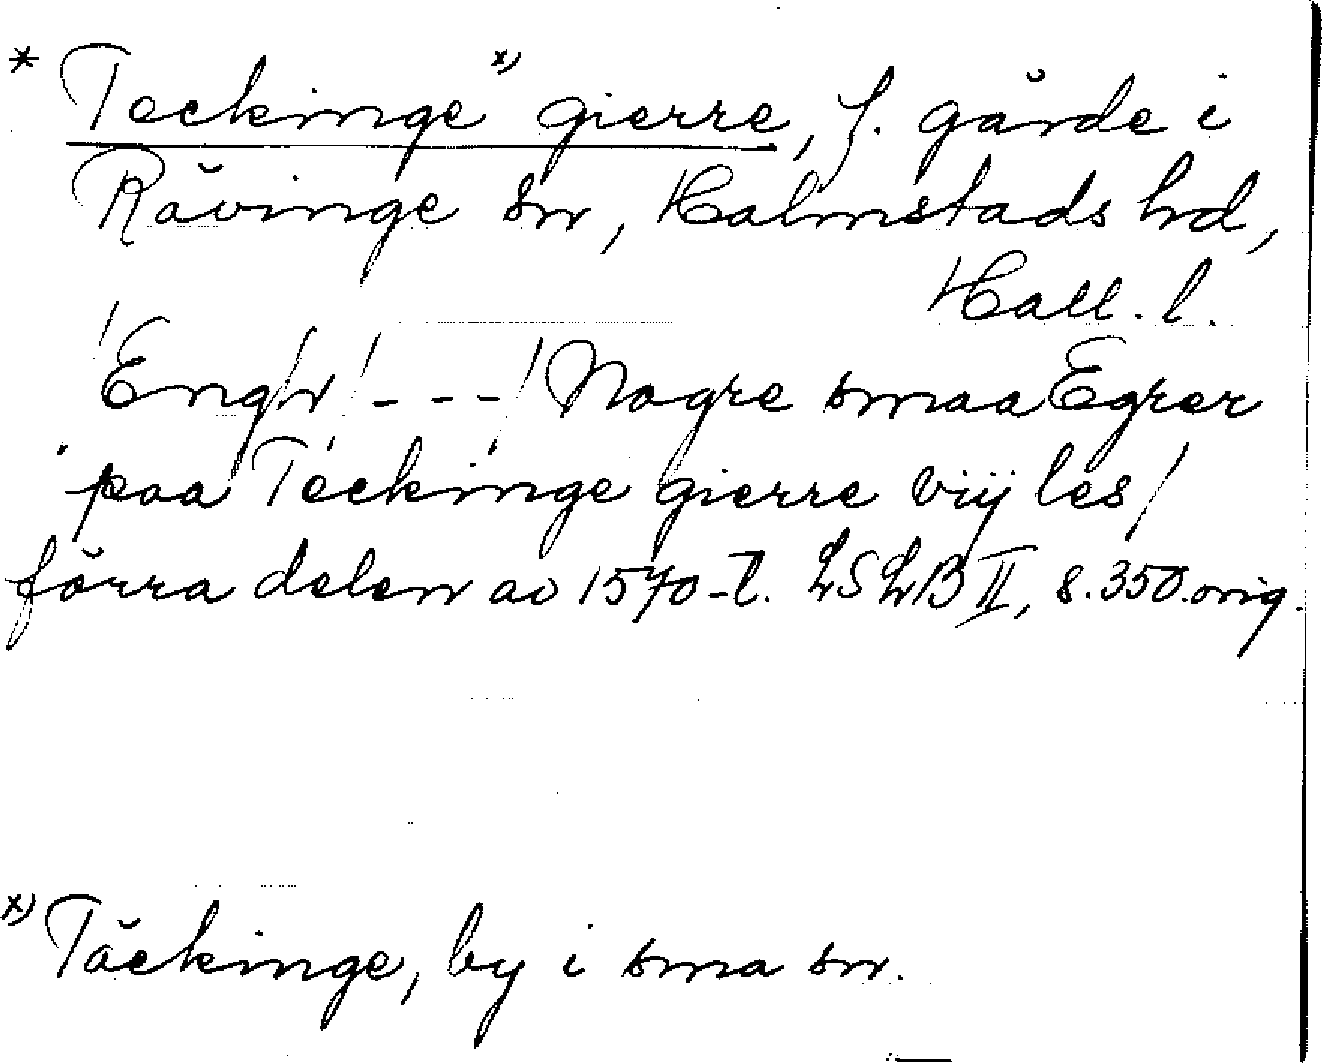 * Teckinge x) gierre, f. gärde i
Rävinge sn, Halmstads hd,
Hall. l.
/Engh/ - - - / Nogre smaa Egrer
paa Teckinge gierre viij les/
förra delen av 1570-t. LSLB II, s. 350. orig.
x) Täckinge, by i sma sn.